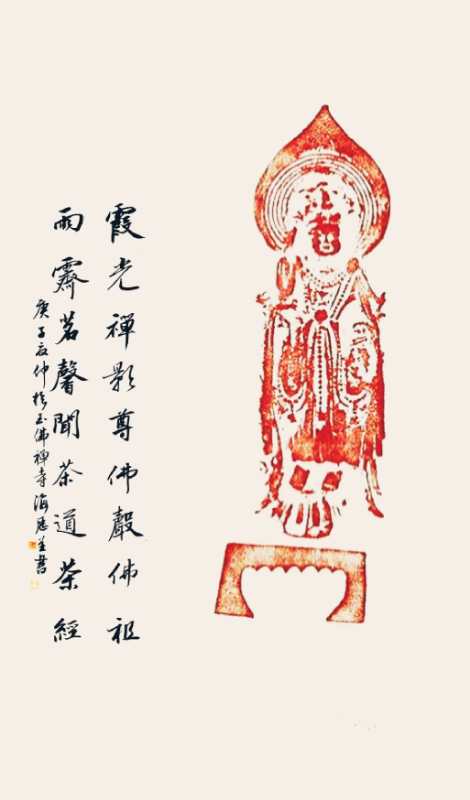 霞光禪影尊佛聲佛祖
雨霽茗馨聞茶道茶經
庚子夏仲於玉佛禪寺海並書